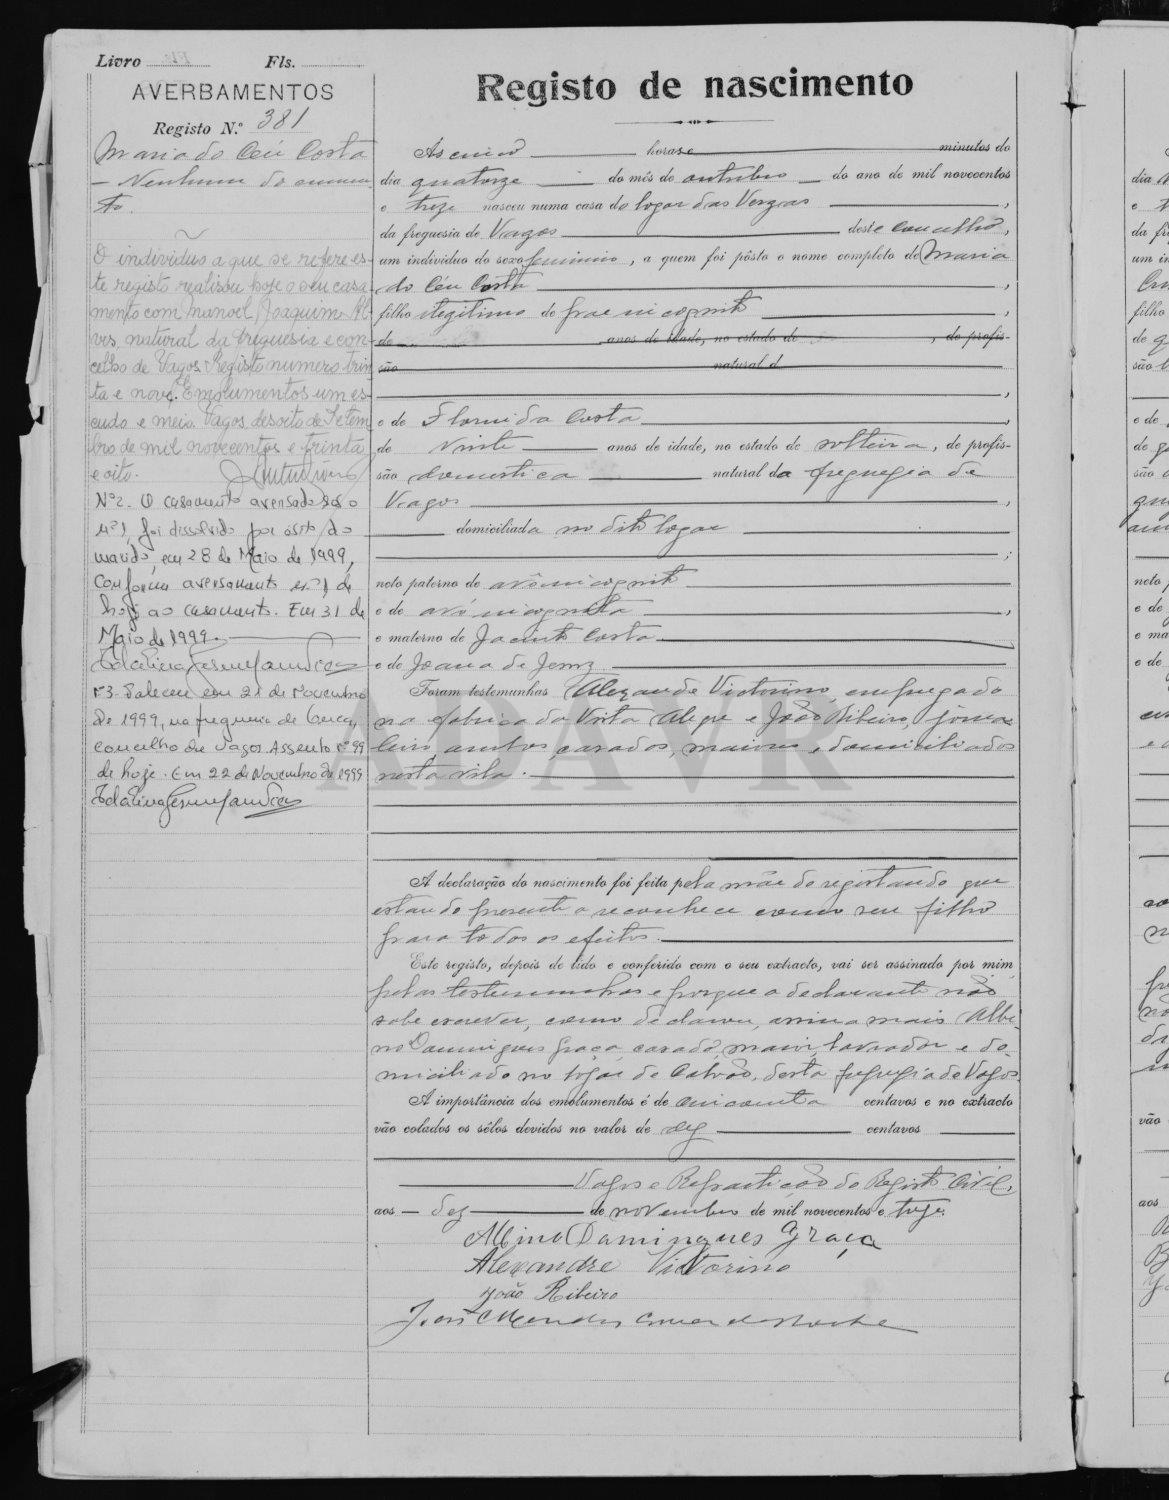 Livro Fls.
AVERBAMENTOS
Registo N.º 381
Maria do Céu Costa
— Nenhum documen
to.
O individuo a que se refere es-
te registo realisou hoje o seu casa
mento com Manoel Joaquim Al-
ves, natural da freguesia e con-
celho de Vagos. Registo numero trin
ta e nove. Emolumentos um es-
cudo e meio. Vagos, desoito de Setem
bro de mil novecentos e trinta
e oito.
Nº2. O casamento averbado sob o
nº1, foi dissolvido por óbito do
marido, em 28 de Maio de 1999,
conforme averbamento nº 1 de
hoje ao casamento. Em 31 de
Maio de 1999.
Nº3. Faleceu em 21 de Novembro
de 1999, na freguesia de
concelho de Vagos. Assento nº 99
de hoje. Em 22 de Novembro de 1999
Registo de nascimento
Ás cinco horas e minutos do
dia quatorze do mês de outubro do ano de mil novecentos
e treze nasceu numa casa do logar das Vergas,
da freguesia de Vagos deste concelho,
um individuo do sexo feminino, a quem foi pôsto o nome completo de Maria
do Céu Costa,
filho ilegitimo de pae incognito,
de anos de idade, no estado de, de profis-
são natural d
e de Florinda Costa,
de vinte anos de idade, no estado de solteira, de profis-
são domestica natural da freguezia de
Vagos,
domiciliada no dito logar
;
neto paterno de avô incognito
e de avó incognita,
e materno de Jacinto Costa
e de Joana de Jesus
Foram testemunhas Alexandre Victorino, empregado
na fabrica da Vista Alegre e João Ribeiro, jorna-
leiro ambos casados, maiores e domiciliados
nesta vila.
ADAVR
A declaração do nascimento foi feita pela mãe do registando que
estando presente o reconhece como seu filho
para todos os efeitos.
Este registo, depois de lido e conferido com o seu extracto, vai ser assinado por mim
pelas testemunhas e porque a declarante não
sabe escrever, como declarou, assina mais Albi-
no Domingues Graça, casado, maior, lavrador e do-
miciliado no logar de Calvão, desta freguezia de Vagos.
A importância dos emolumentos é de cincoenta centavos e no extracto
vão colados os sêlos devidos no valor de dez centavos
Vagos e Repartição do Registo Civil,
aos — dez de novembro de mil novecentos e treze.
Albino Domingues Graça
Alexandre Victorino
João Ribeiro
José Mendes Correa da Rocha